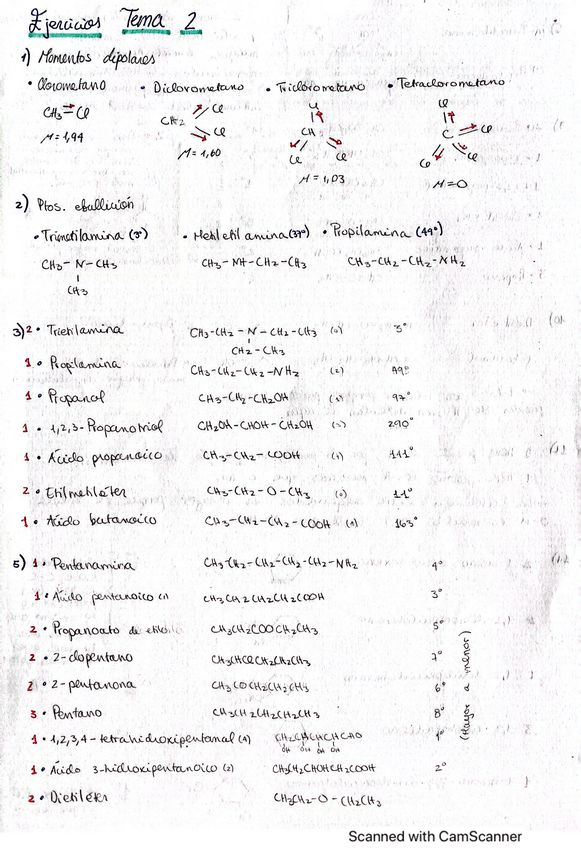 Ejercicios Tema 2
1) Momentos dipolares
• Clorometano • Diclorometano • Triclorometano • Tetraclorometano
CH3 Cl
CH2 Cl Cl
CH Cl Cl Cl
C Cl Cl Cl Cl
M = 1,94 M = 1,60 M = 1,03 M = 0
2) Ptos. ebullición
• Trimetilamina (3°) • Metiletilamina (37°) • Propilamina (49°)
CH3 - N - CH3 CH3 - NH - CH2 - CH3 CH3 - CH2 - CH2 - NH2
CH3
3) 2 • Trietilamina CH3 - CH2 - N - CH2 - CH3 (0) 3°
CH2 - CH3
1 • Propilamina CH3 - CH2 - CH2 - NH2 (2) 49°
1 • Propanol CH3 - CH2 - CH2OH (1) 97°
1 • 1,2,3-Propanotriol CH2OH - CHOH - CH2OH (3) 290°
1 • Ácido propanoico CH3 - CH2 - COOH (1) 141°
2 • Etilmetiléter CH3 - CH2 - O - CH3 (0) 11°
1 • Ácido butanoico CH3 - CH2 - CH2 - COOH 163°
5) 1 • Pentanamina CH3 - CH2 - CH2 - CH2 - CH2 - NH2 4°
1 • Ácido pentanoico (1) CH3CH2CH2CH2COOH 3°
2 • Propanoato de etilo CH3CH2COOCH2CH3 5°
2 • 2-clopentano CH3CHClCH2CH2CH3 7°
2 • 2-pentanona CH3COCH2CH2CH3 6°
3 • Pentano CH3CH2CH2CH2CH3 8°
1 • 1,2,3,4-tetrahidroxipentanal (4) CH2CHCHCHCHO 1°
OH OH OH OH
1 • Ácido 3-hidroxipentanoico (2) CH3CH2CHOHCH2COOH 2°
2 • Dietiléter CH3CH2 - O - CH2CH3
(Mayor a menor)
Scanned with CamScanner